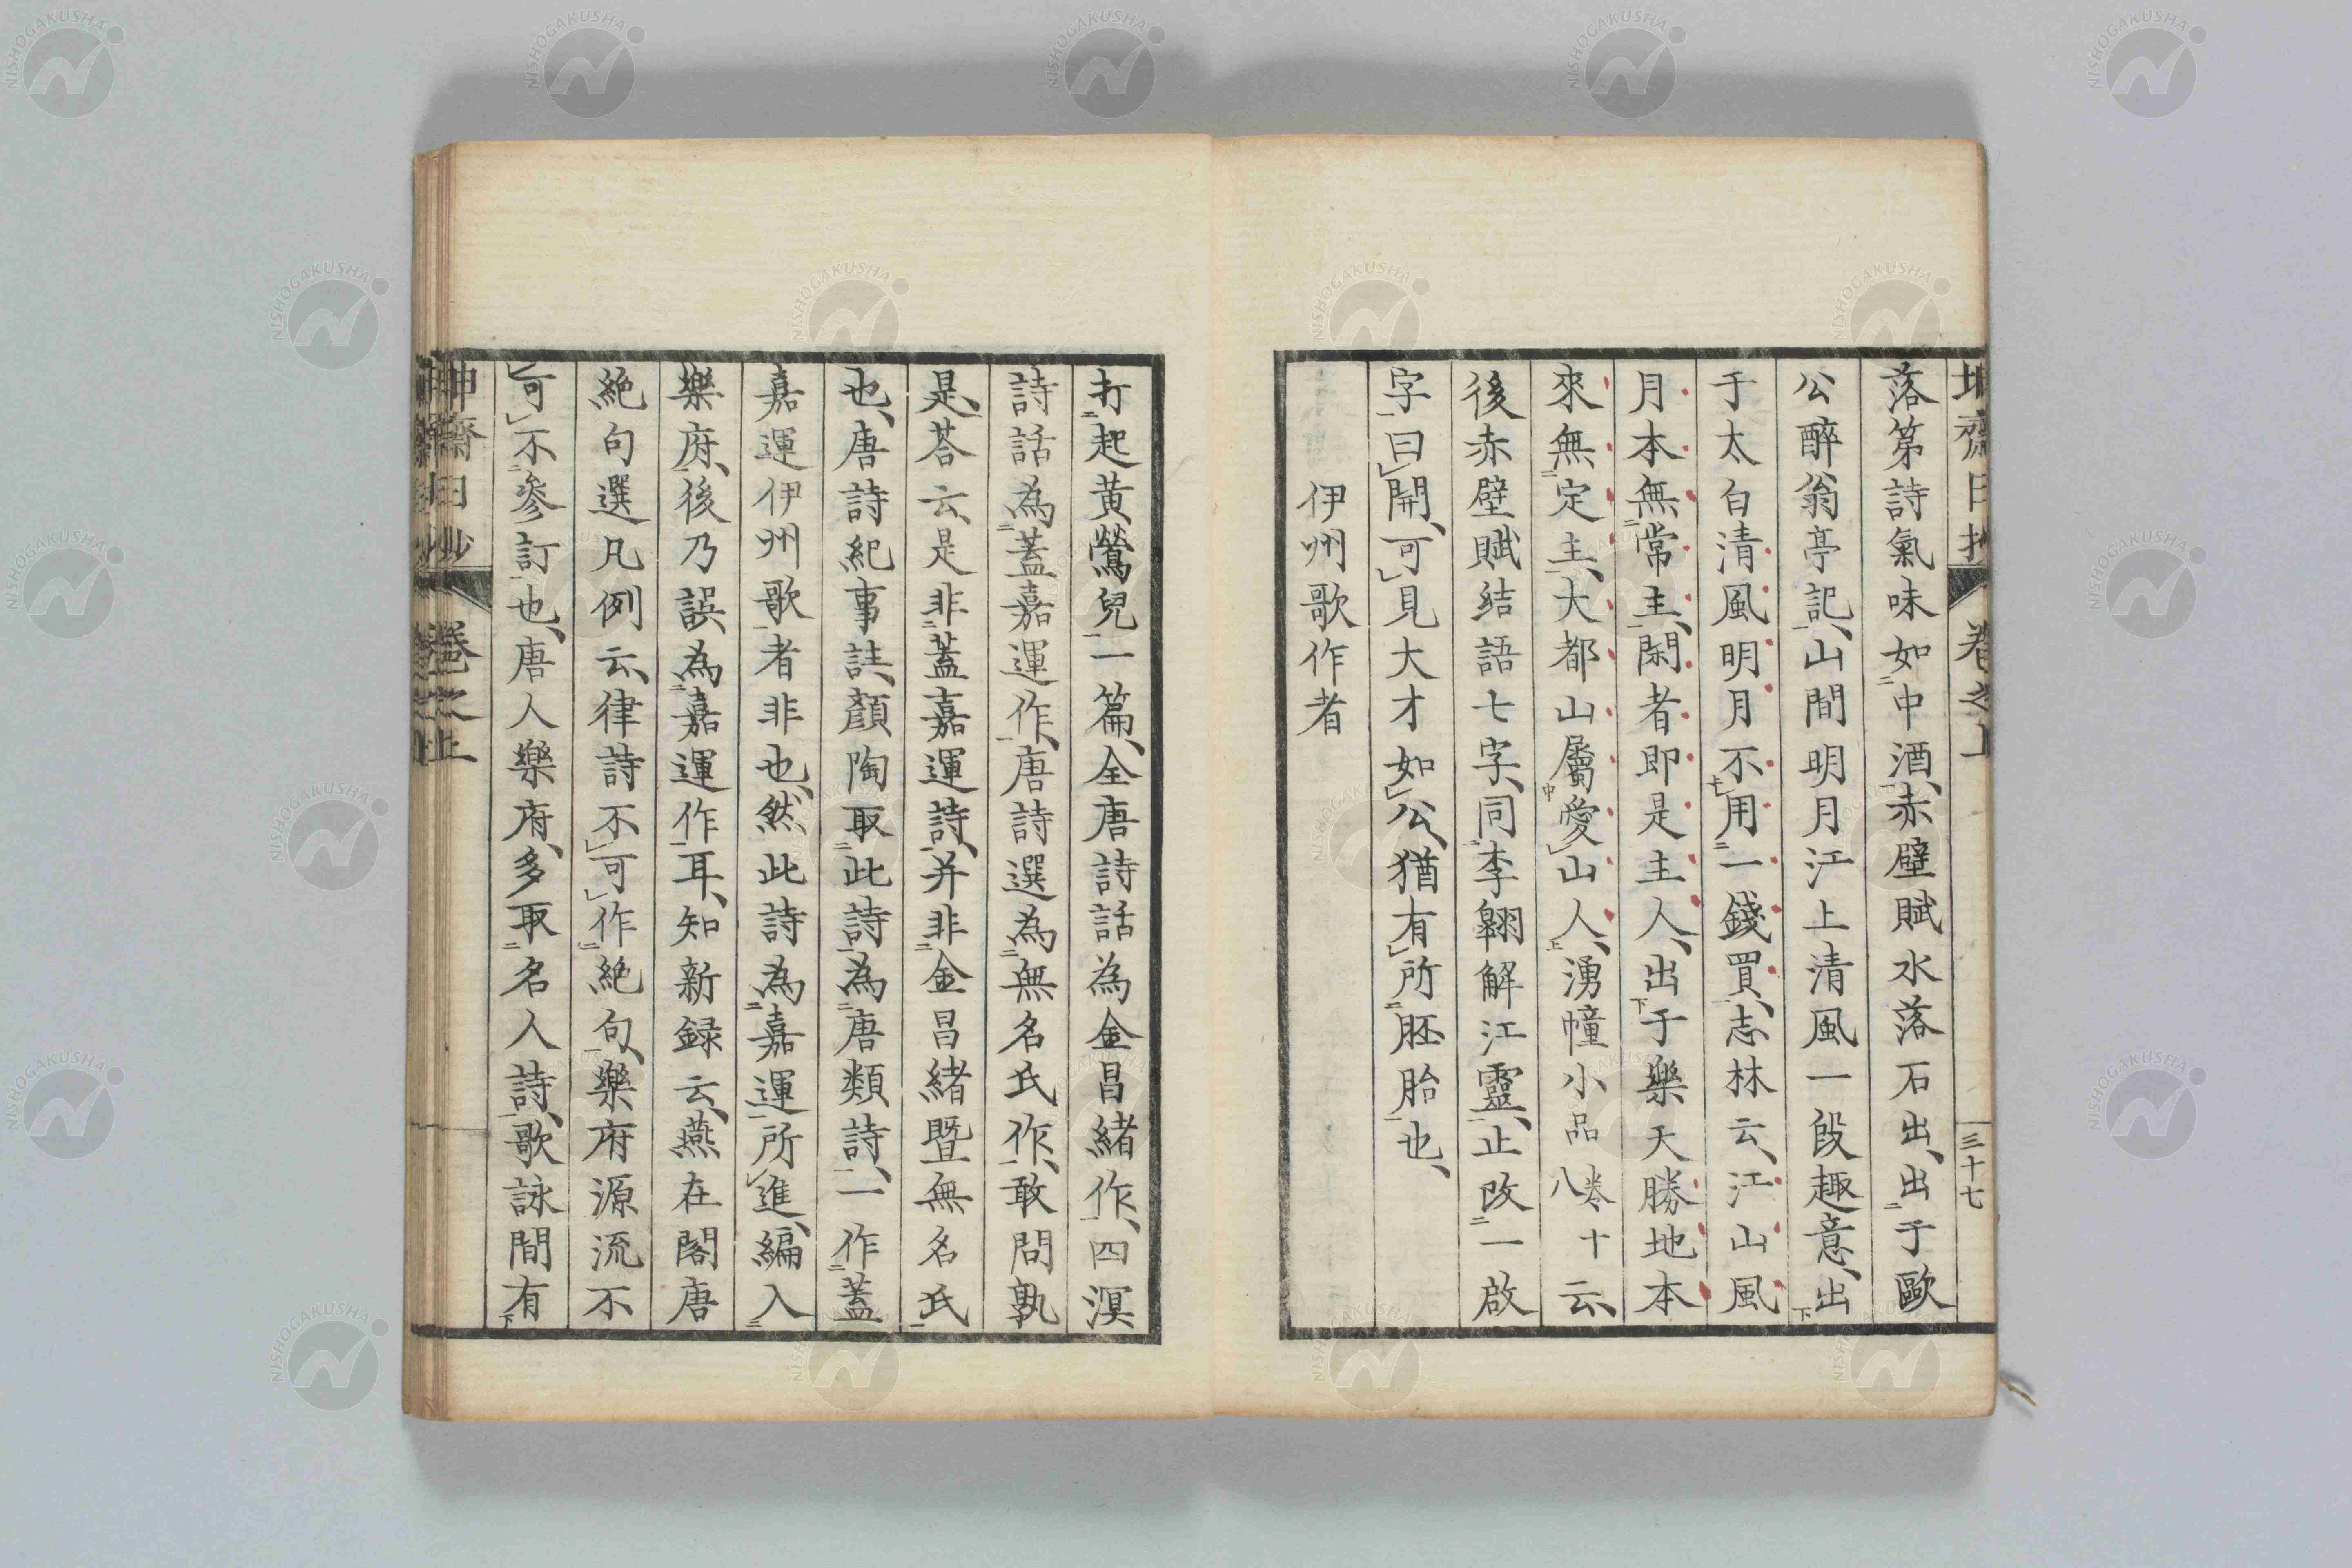 落第詩氣味如二中酒一、赤壁賦水落石出、出二于歐
公醉翁亭記一、山間明月江上清風一段趣意、出下
于太白清風明月不レ用二一錢買一、志林云、江山風
月本無二常主一、閑者即是主人、出下于樂天勝地本
來無二定主一、大都山屬中愛レ山人上、湧幢小品卷十八云、
後赤壁賦結語七字、同二李翱解江靈一、止改二一啟
字一曰レ開、可レ見大才如レ公、猶有レ所二胚胎一也、
伊州歌作者
打二起黃鶯兒一一篇、全唐詩話為金昌緒作一、四溟
詩話為二蓋嘉運作一、唐詩選為二無名氏作一、敢問孰
是、荅云、是非二蓋嘉運詩一、并非二金昌緒暨無名氏一
也、唐詩紀事註、顏陶取二此詩一為二唐類詩一、一作二蓋
嘉運伊州歌一者非也、然此詩為二嘉運一所レ進、編入二
樂府一、後乃誤為二嘉運作一耳、知新録云、燕在閣唐
絕句選凡例云、律詩不レ可レ作二絕句一、樂府源流不
レ可レ不二參訂一也、唐人樂府、多取二名人詩一、歌詠間有下
坤齋日抄 卷之上 三十七
坤齋日抄 卷之上